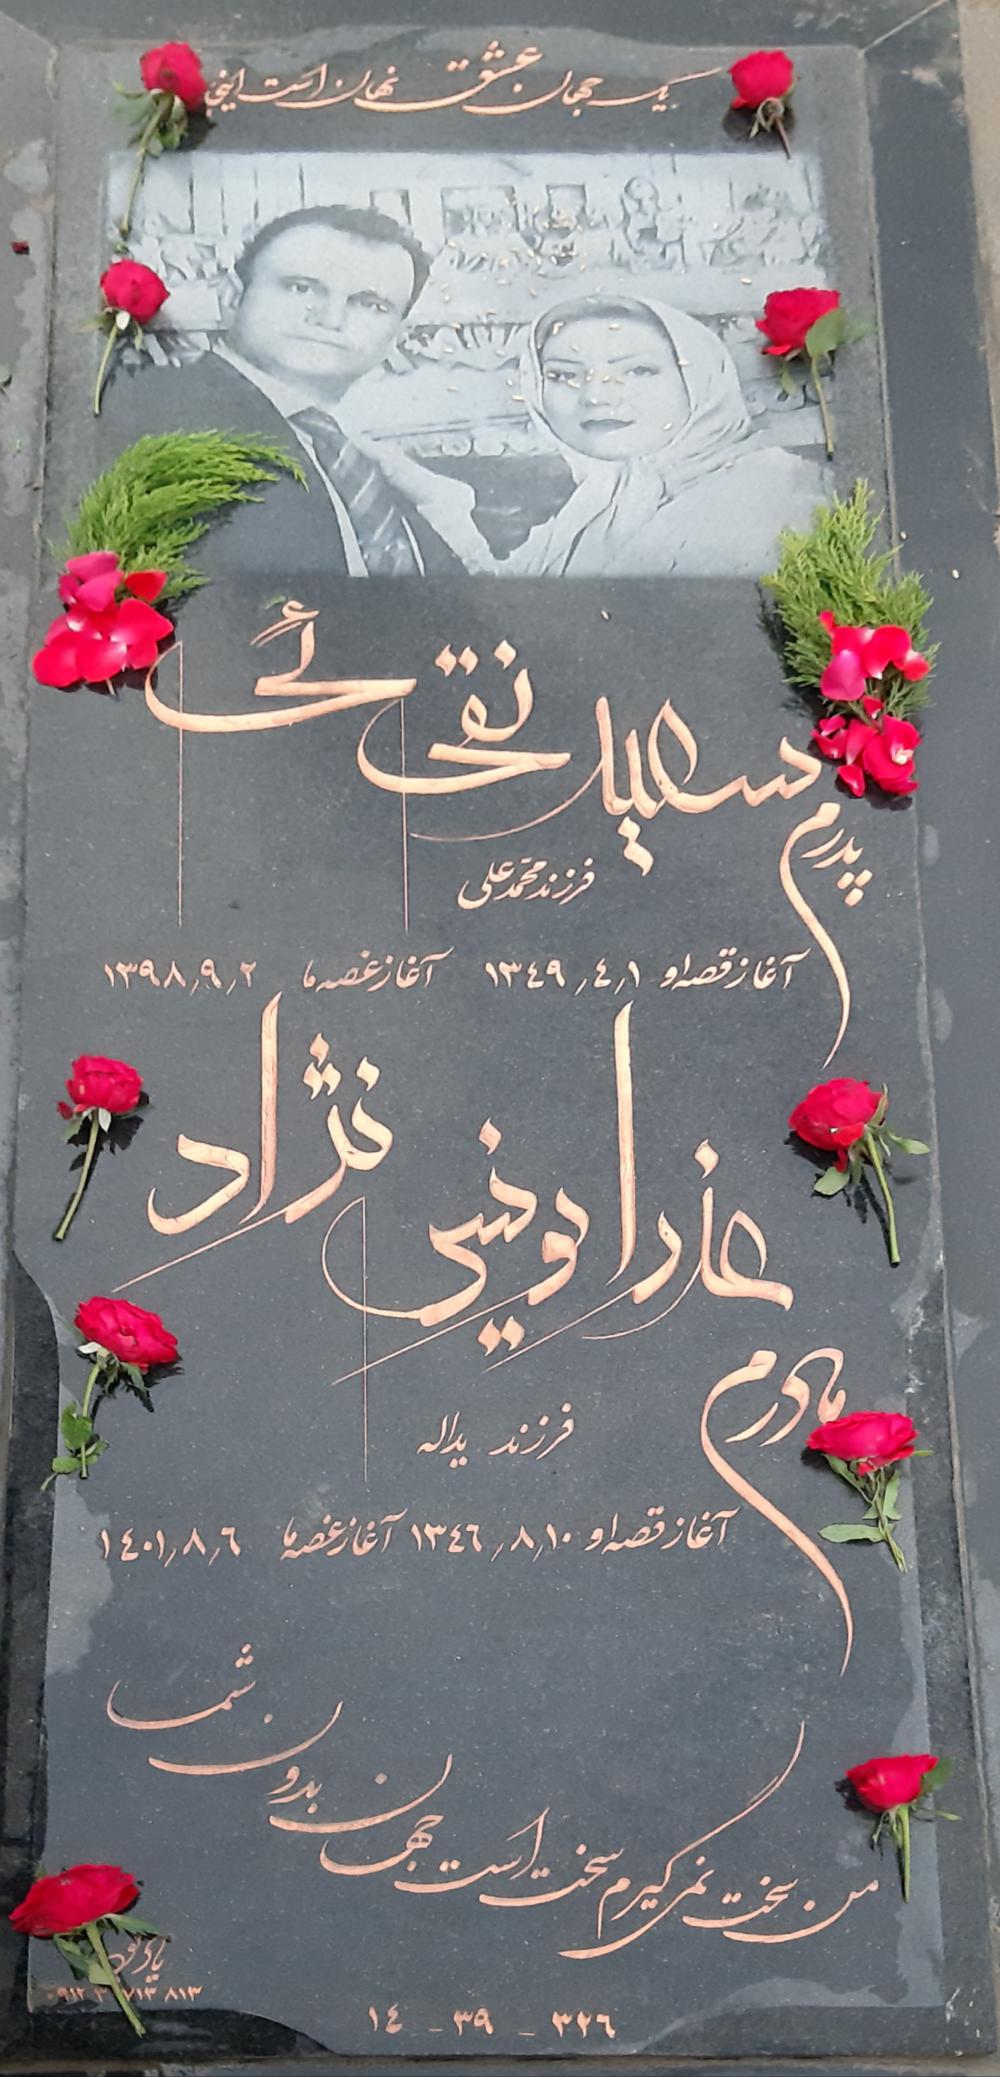 یک جهان عشق نهان است اینجا
پدرم سعید نقی ئی
فرزند محمدعلی
آغاز قصه او ۱۳۴۹٫۴٫۱ آغاز غصه ما ۱۳۹۸٫۹٫۲
عذرا یونسی نژاد
مادرم
فرزند یداله
آغاز قصه او ۱۳۴۶٫۸٫۱۰ آغاز غصه ما ۱۴۰۱٫۸٫۶
من سخت نمی گیرم سخت است جهان بدون شما
۳۲۶ - ۳۹ - ۱۴